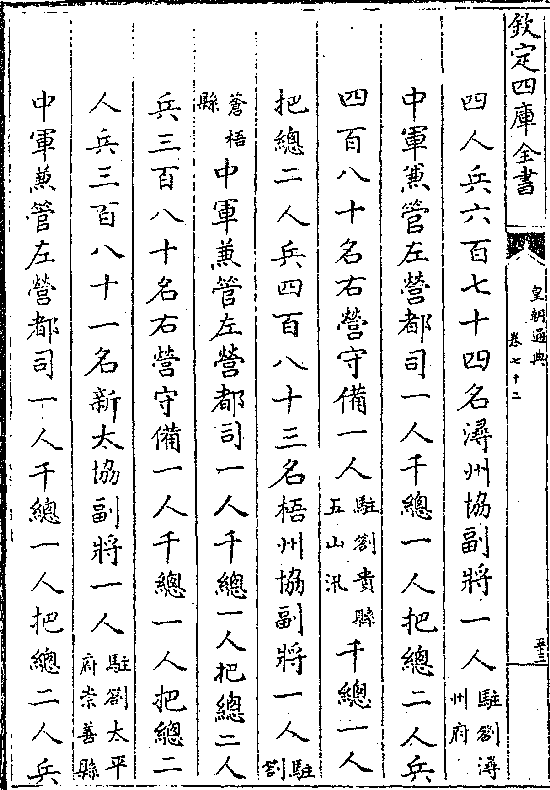 欽定四庫全書
皇朝通典
卷七十二
四人兵六百七十四名潯州協副將一人駐劄潯州府
中軍兼管左營都司一人千總一人把總二人兵
四百八十名右營守備一人駐劄貴縣五山汛千總一人
把總二人兵四百八十三名梧州協副將一人駐劄
蒼梧縣中軍兼管左營都司一人千總一人把總二人
兵三百八十名右營守備一人千總一人把總二
人兵三百八十一名新太協副將一人駐劄太平府崇善縣
中軍兼管左營都司一人千總一人把總二人兵